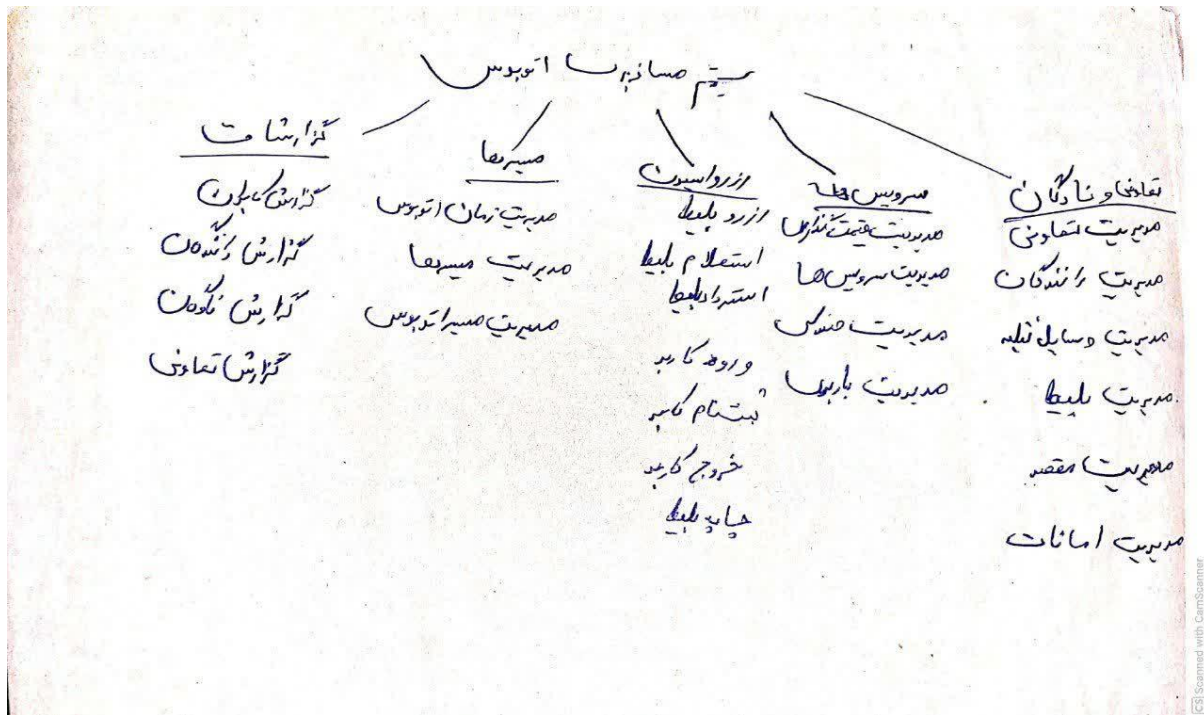 سیستم مسافربری اتوبوس
تعاونی و ناوگان
مدیریت تعاونی
مدیریت رانندگان
مدیریت وسایل نقلیه
مدیریت بلیط
مدیریت مقصد
مدیریت امانات
سرویس ها
مدیریت قیمت گذاری
مدیریت سرویس ها
مدیریت صندلی
مدیریت باربری
رزرواسیون
رزرو بلیط
استعلام بلیط
استرداد بلیط
ورود کاربر
ثبت نام کاربر
خروج کاربر
چاپ بلیط
مسیرها
مدیریت زمان اتوبوس
مدیریت مسیرها
مدیریت مسیر اتوبوس
گزارشات
گزارش کاربران
گزارش رانندگان
گزارش ناوگان
گزارش تعاونی
CS Scanned with CamScanner